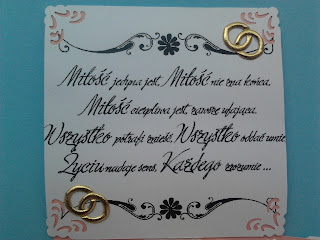 Miłość jedyna jest, Miłość nie zna końca,
Miłość cierpliwa jest, zawsze ufająca.
Wszystko potrafi znieść, Wszystko oddać umie,
Życiu nadaje sens, Każdego zrozumie...